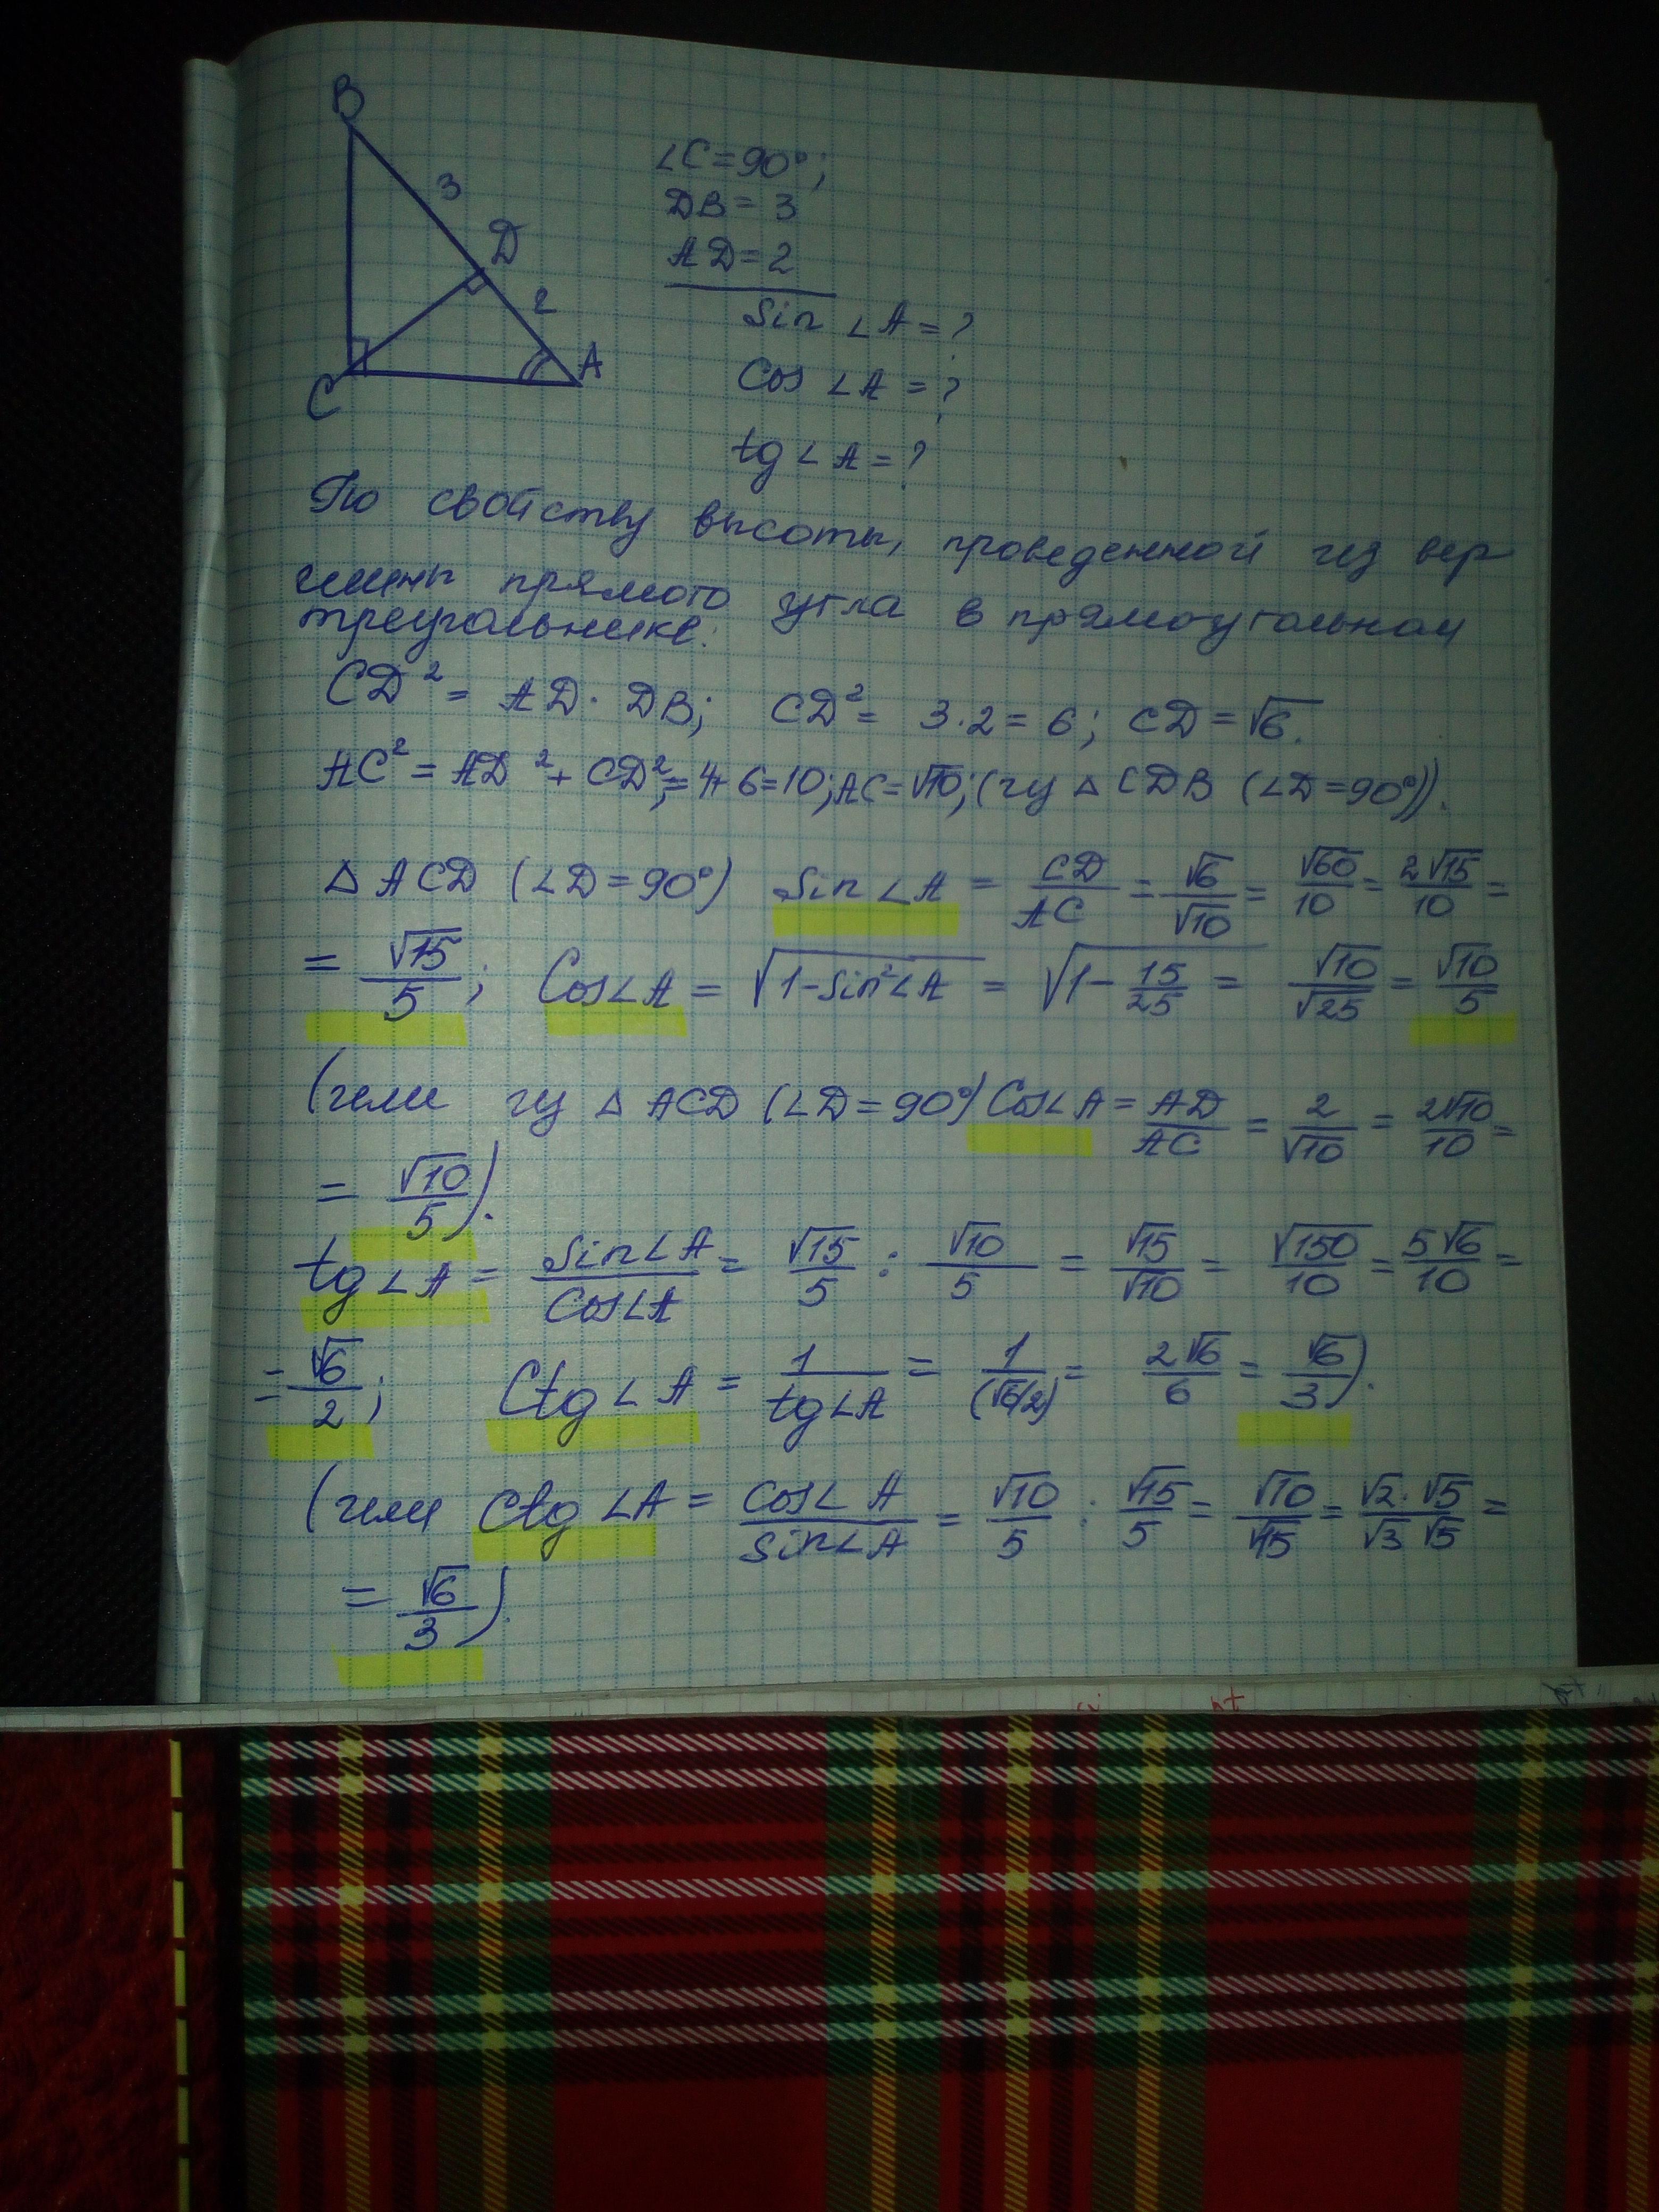 B
3
D
2
C
A
∠C=90°;
DB=3
AD=2
Sin ∠A=?
Cos ∠A=?
tg ∠A=?
По свойству высоты, проведенной из вер
шины прямого угла в прямоугольном
треугольнике:
CD²= AD· DB; CD²= 3·2=6; CD=√6.
AC²=AD²+CD²;=4+6=10;AC=√10;(из △ CDB (∠D=90°)).
△ ACD (∠D=90°) Sin∠A = CD/AC = √6/√10 = √60/10 = 2√15/10 =
= √15/5; Cos∠A = √(1-Sin²∠A) = √(1-15/25) = √10/√25 = √10/5
(или из △ ACD (∠D=90°) Cos∠A = AD/AC = 2/√10 = 2√10/10 =
= √10/5).
tg∠A = Sin∠A/Cos∠A = √15/5 : √10/5 = √15/√10 = √150/10 = 5√6/10 =
= √6/2; Ctg∠A = 1/tg∠A = 1/(√6/2) = 2√6/6 = √6/3).
(или Ctg∠A = Cos∠A/Sin∠A = √10/5 : √15/5 = √10/√15 = √2·√5/√3 √5 =
= √6/3).